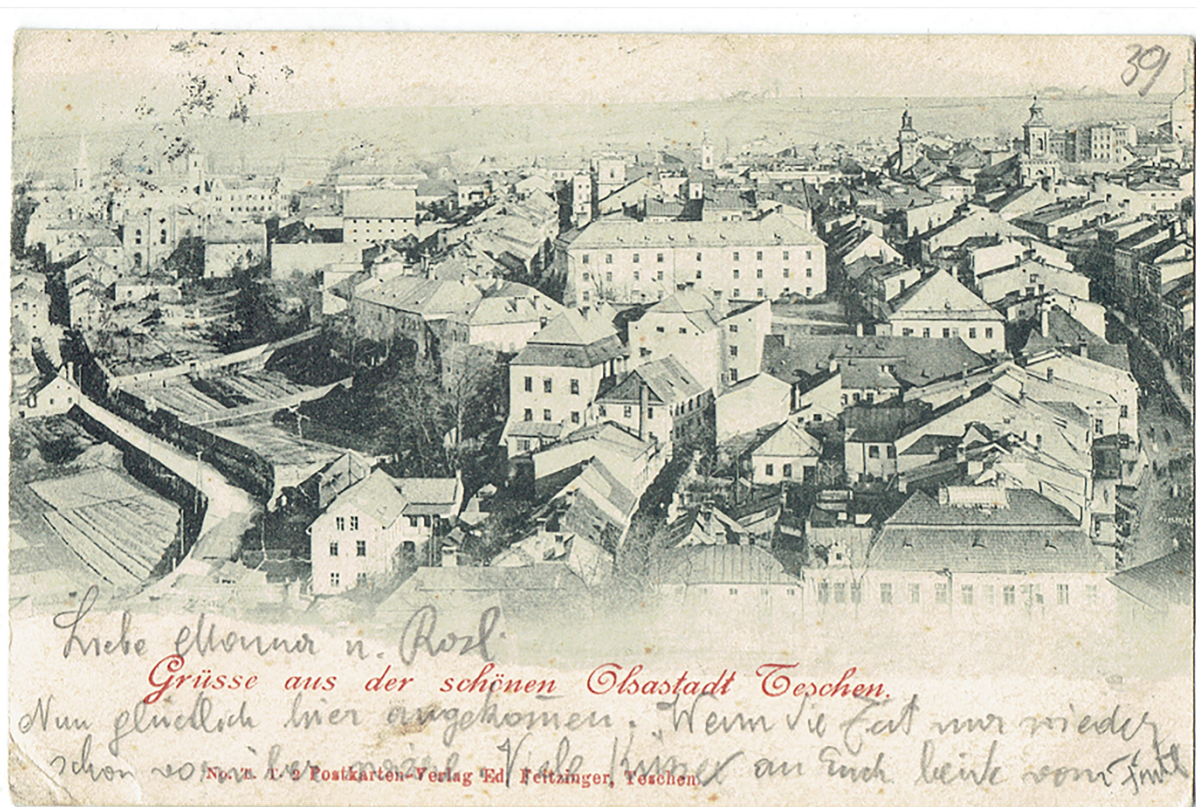 39
Liebe Mama u. Rosl.
Grüsse aus der schönen Olsastadt Teschen.
Nun glücklich hier angekommen. Wenn die Zeit nur wieder
schon vorüber wäre. Viele Küsse an Euch beide vom
No. T. T. 2 Postkarten-Verlag Ed. Feitzinger, Teschen.